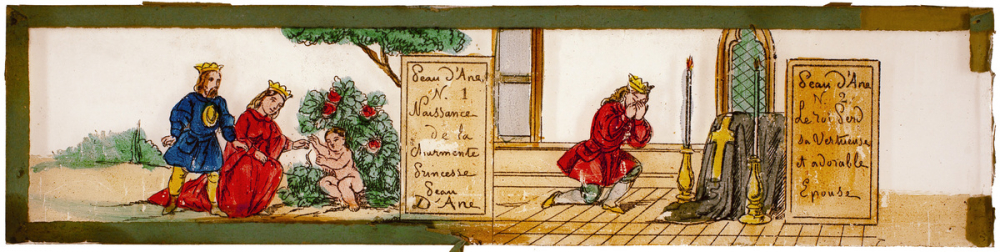 Peau d'Ane
N. 1
Naissance
de la
charmente
Princesse
Peau
D'Ane
Peau d'Ane
N. 2
Le roi Perd
sa Vertueuse
et adorable
Epouse